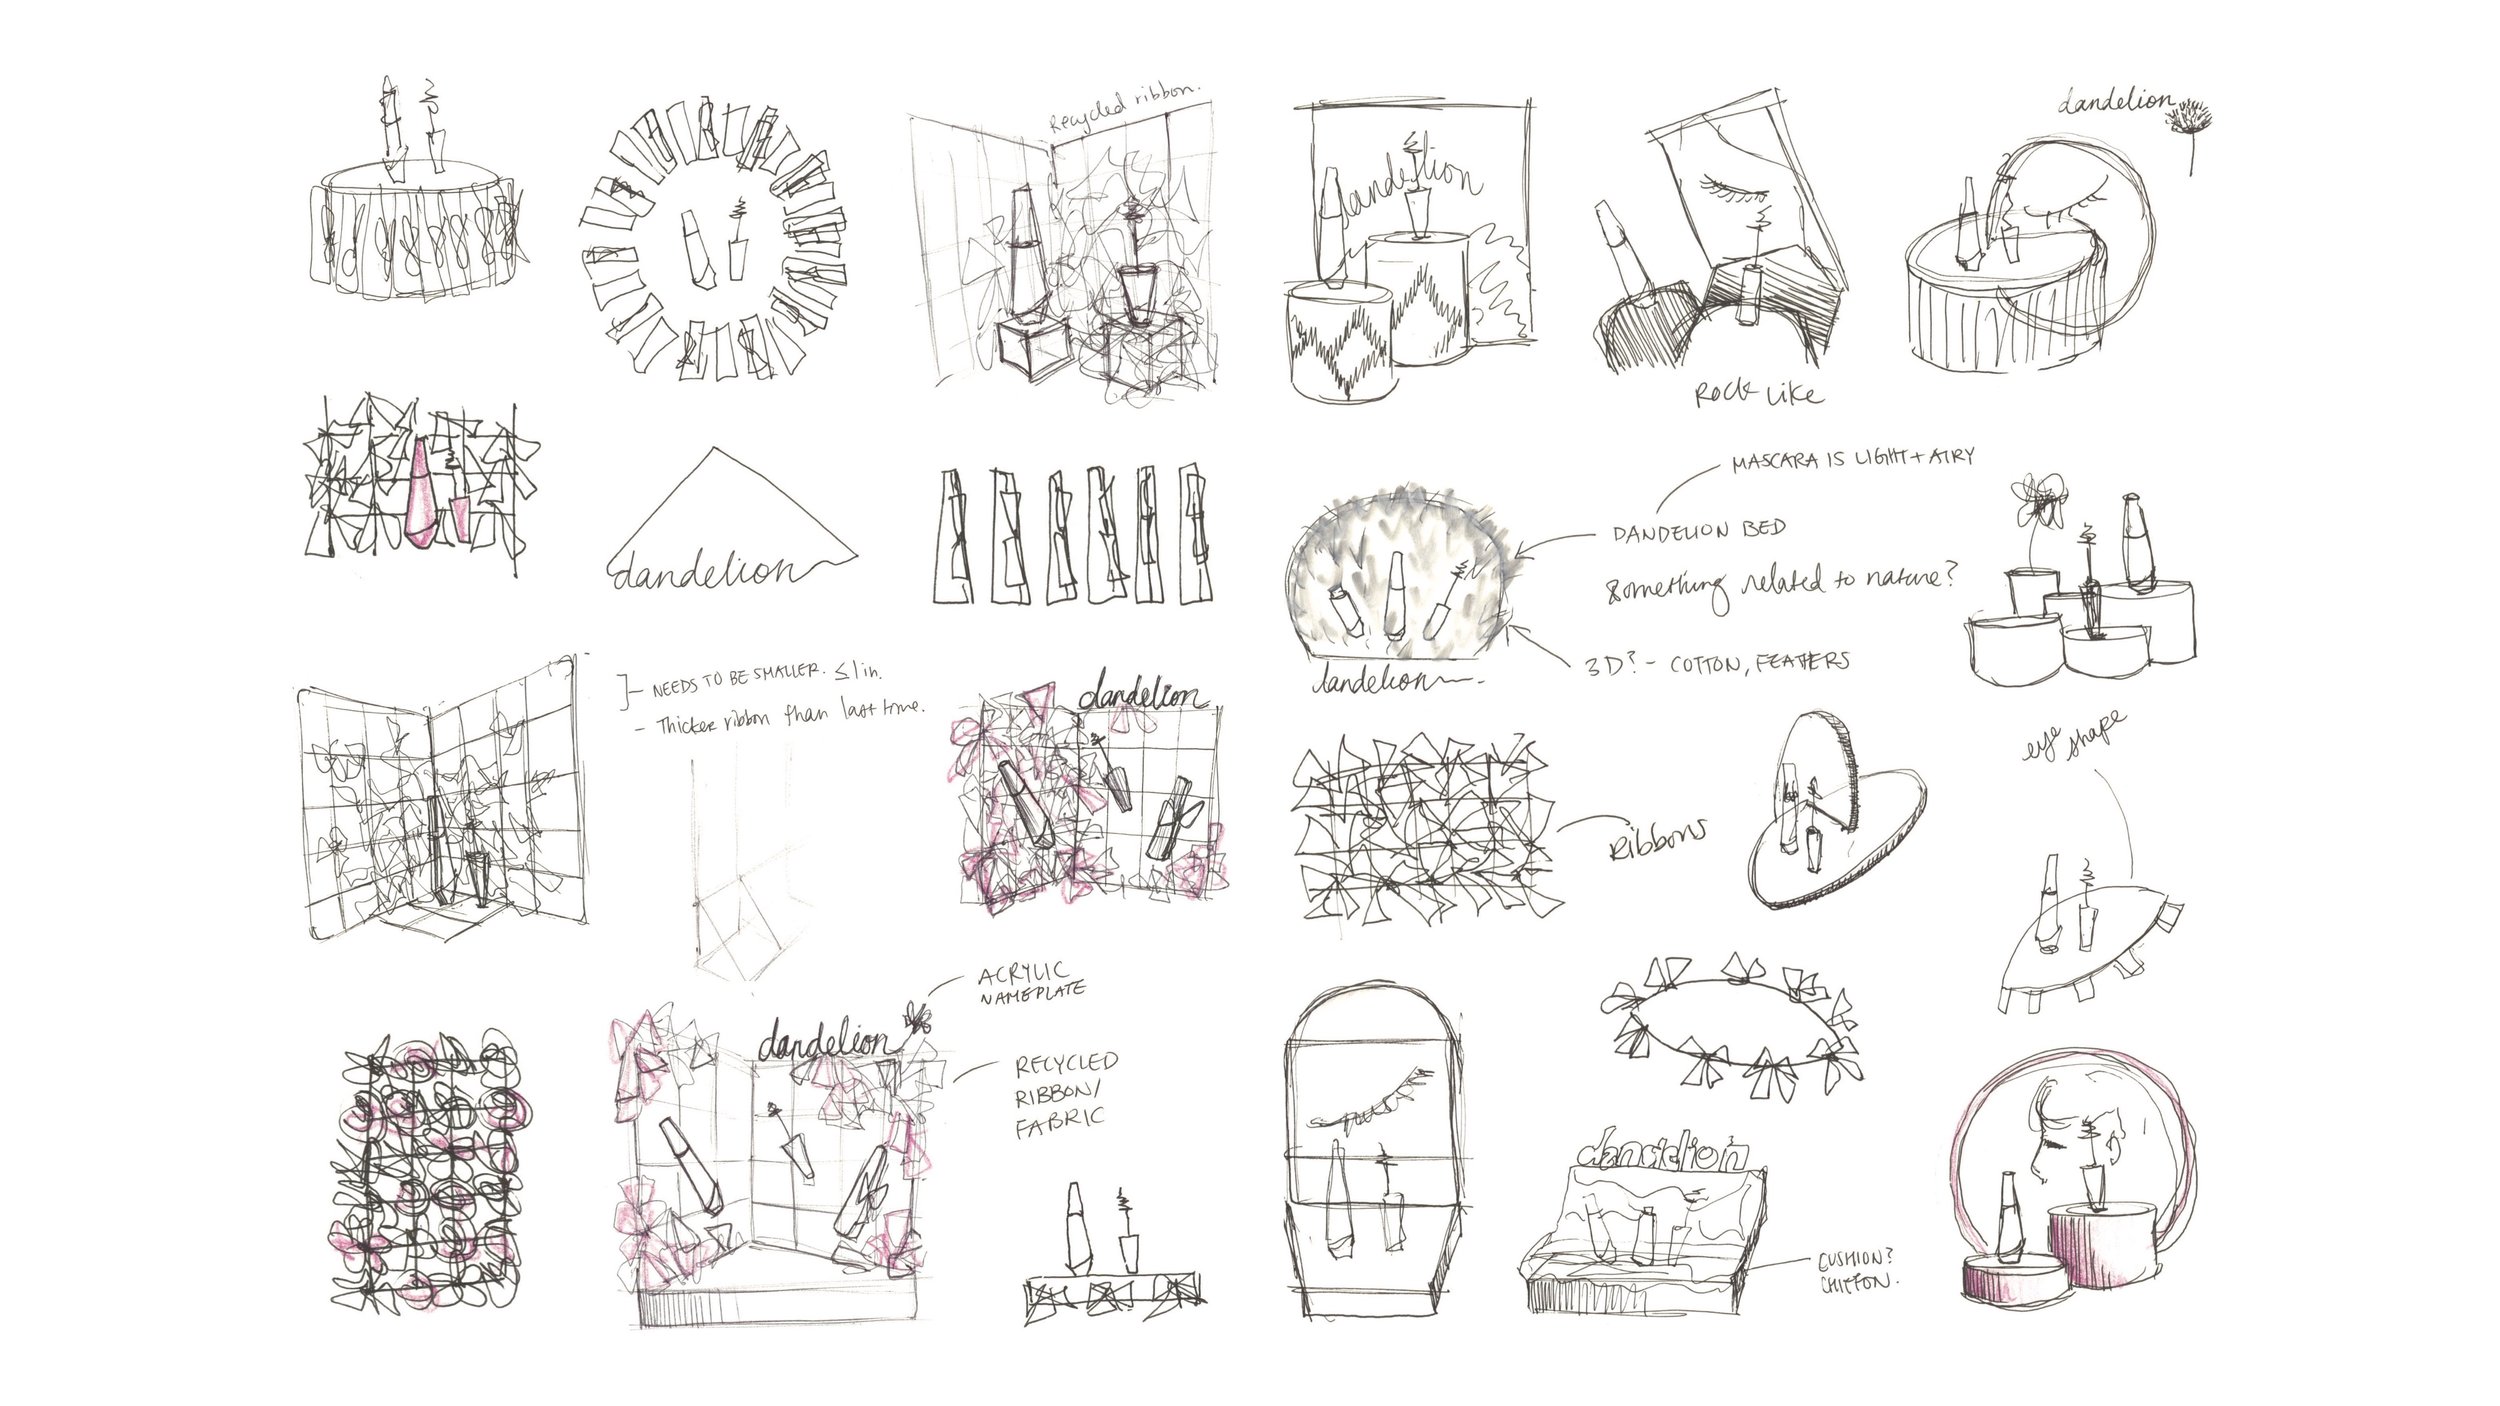 Recycled ribbon.
dandelion
dandelion
ROCK LIKE
dandelion
MASCARA IS LIGHT + AIRY
DANDELION BED
Something related to nature?
3D? - COTTON, FEATHERS
dandelion
- NEEDS TO BE SMALLER. ≤ 1 in.
- Thicker ribbon than last time.
dandelion
Ribbons
eye shape
ACRYLIC
NAMEPLATE
dandelion
RECYCLED
RIBBON/
FABRIC
dandelion
CUSHION?
CHIFFON.